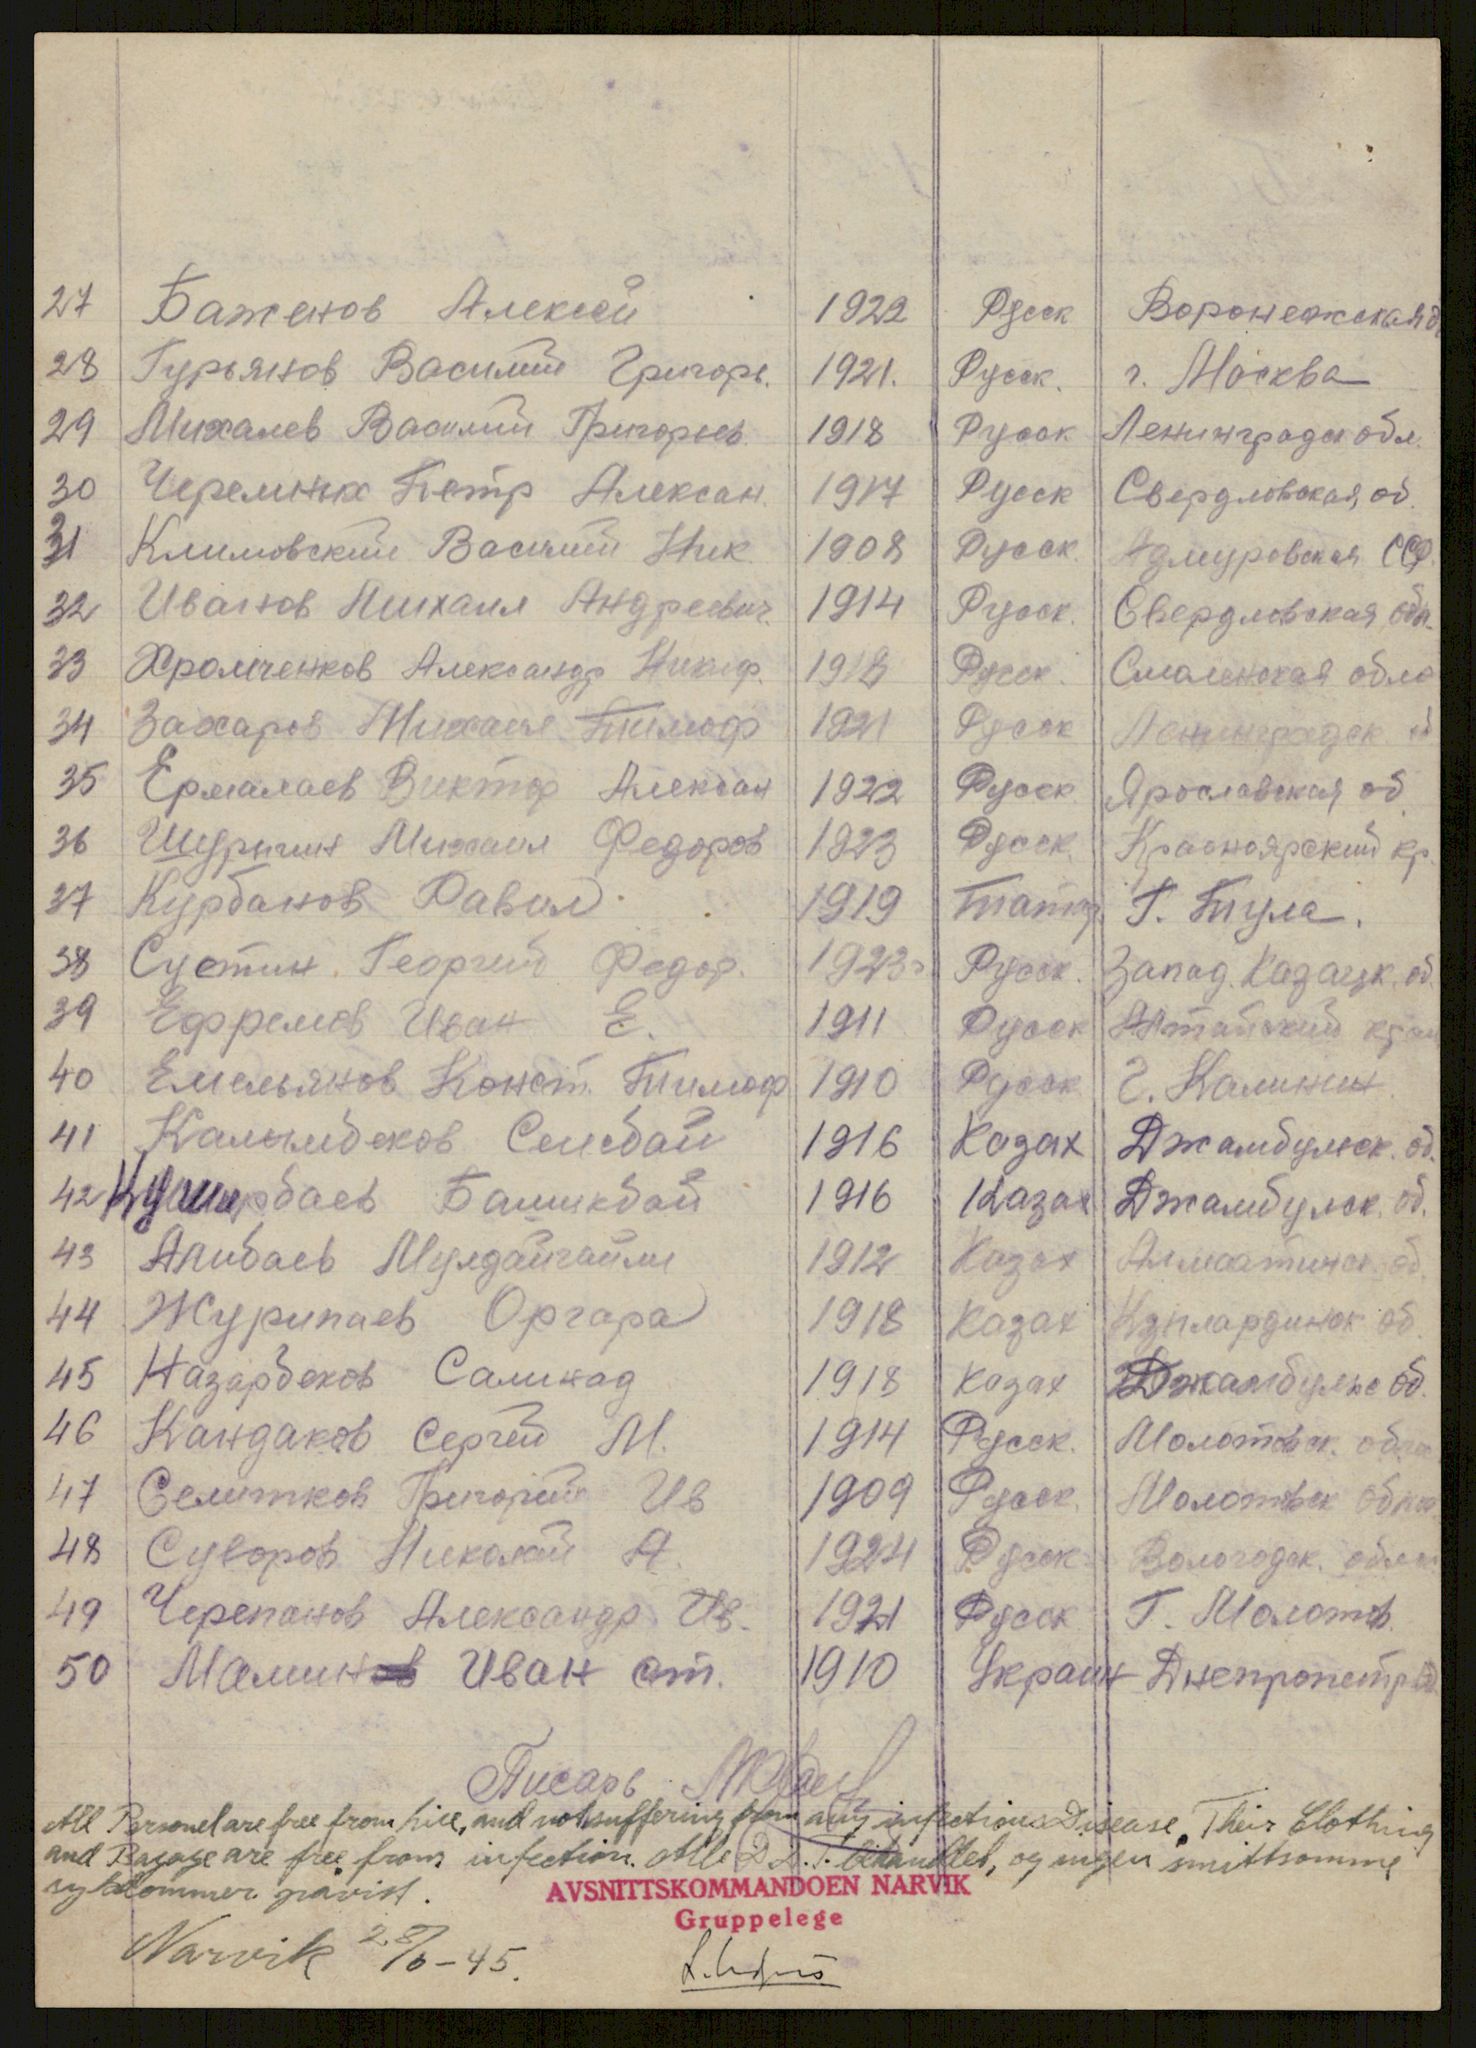 27 Баженов Алексей 1922 Русск Воронежская о
28 Гурьянов Василий Григорь. 1921. Русск. г. Москва
29 Михалев Василий Григорьев. 1918 Русск Ленинградск обл.
30 Черемных Петр Алексан. 1917 Русск Свердловская об.
31 Климовский Василий Ник. 1908 Русск. ССР.
32 Иванов Михаил Андреевич. 1914 Русск. Свердловская обл.
33 Хромченков Александр Никиф. 1918 Русск. Смоленская обла
34 Захаров Михаил Тимоф 1921 Русск Ленинградск. об
35 Ермалаев Виктор Алексан 1922 Русск. Ярославская об.
36 Шурыгин Михаил Федоров 1923 Русск. Красноярский кр.
37 Курбанов Равил 1919 Татар Г. Тула.
38 Сустин Георгий Федор. 1923 Русск. Запад. Казацк. об.
39 Ефремов Иван Е. 1911 Русск Алтайский край
40 Емельянов Конст. Тимоф 1910 Русск Г. Калинин.
41 Калымбеков Сеисбай 1916 Казах Джамбульск. об.
42 Башикбай 1916 Казах Джамбульск. об.
43 Алибаев 1912 Казах Алмаатинск. об.
44 Журипаев Оргара 1918 Казах Кзылардинск об.
45 Назарбеков Салинад 1918 Казах Джамбульс об.
46 Кандаков Сергей М. 1914 Русск. Молотовск. облас
47 Селитков Григорий Ив 1909 Русск. Молотовск облас
48 Суворов Николай А. 1924 Русск Вологодск. облас
49 Черепанов Александр Ив. 1921 Русск Г. Молотов.
50 Мамин Иван ст. 1910 Украин Днепропетр об
Писарь
All Personel are free from Lice, and not suffering from any infectious Disease. Their Clothing
and Bagage are free from infection. Alle D.D.T. behandlet, og ingen smittsomme
sykdommer påvist.
AVSNITTSKOMMANDOEN NARVIK
Gruppelege
Narvik 28/6-45.